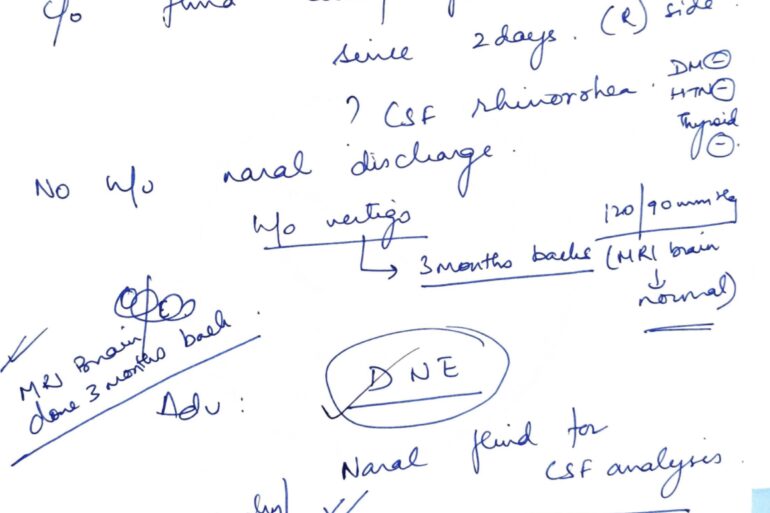 c/o fluid
since 2 days. (R) side.
? CSF rhinorrhea.
DM ⊖
HTN ⊖
Thyroid ⊖.
No h/o nasal discharge.
h/o vertigo
120/90 mmHg
↳ 3 months backs (MRI brain
↓
normal)
MRI Brain
done 3 months back.
Adv: DNE
Nasal fluid for
CSF analysis.